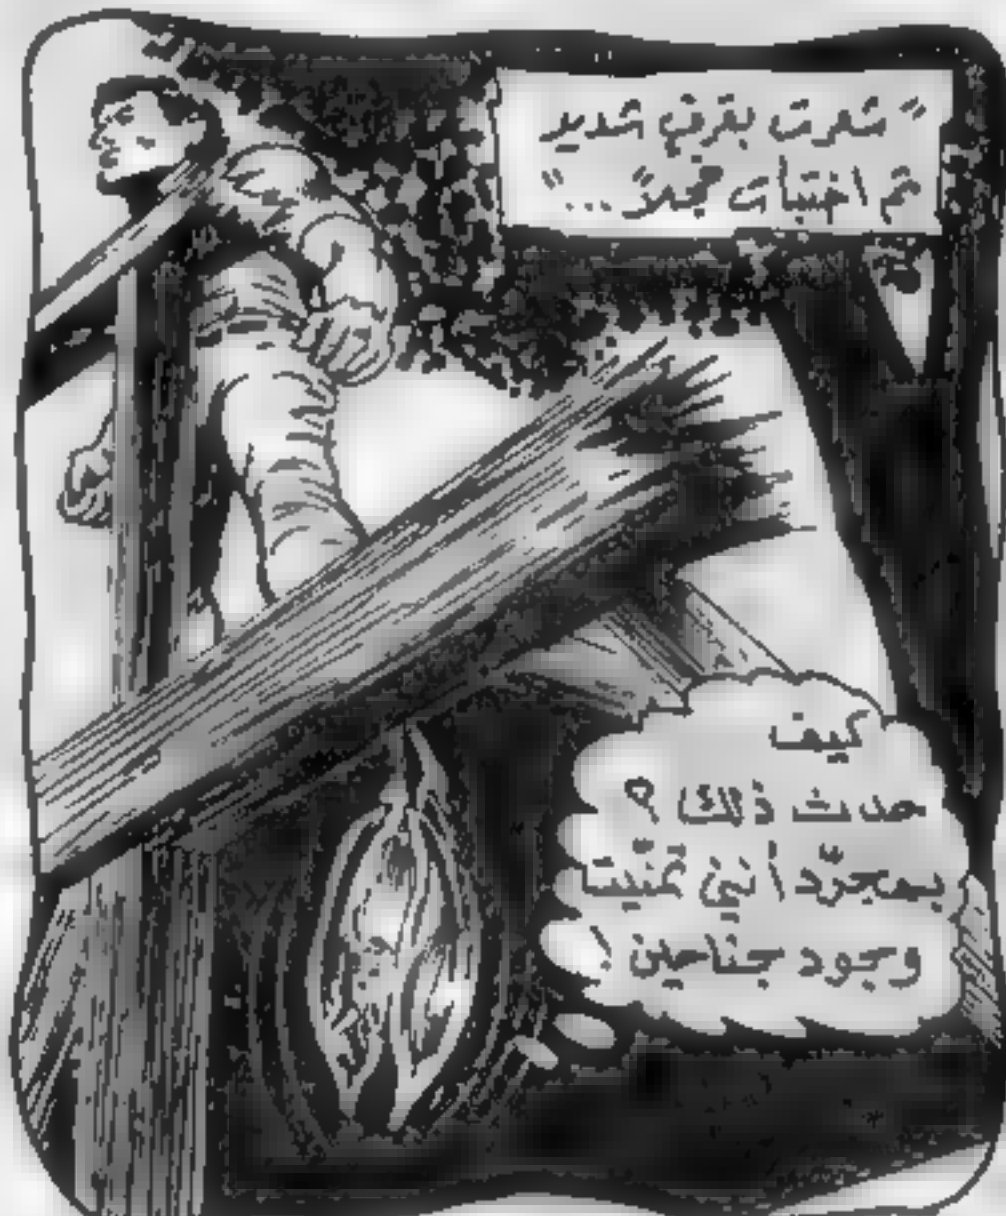 "شعرت بقرف شديد
ثم اختبأت خجلاً..."
كيف
حدث ذلك؟
بمجرّد أنني تمنّيت
وجود جناحين!